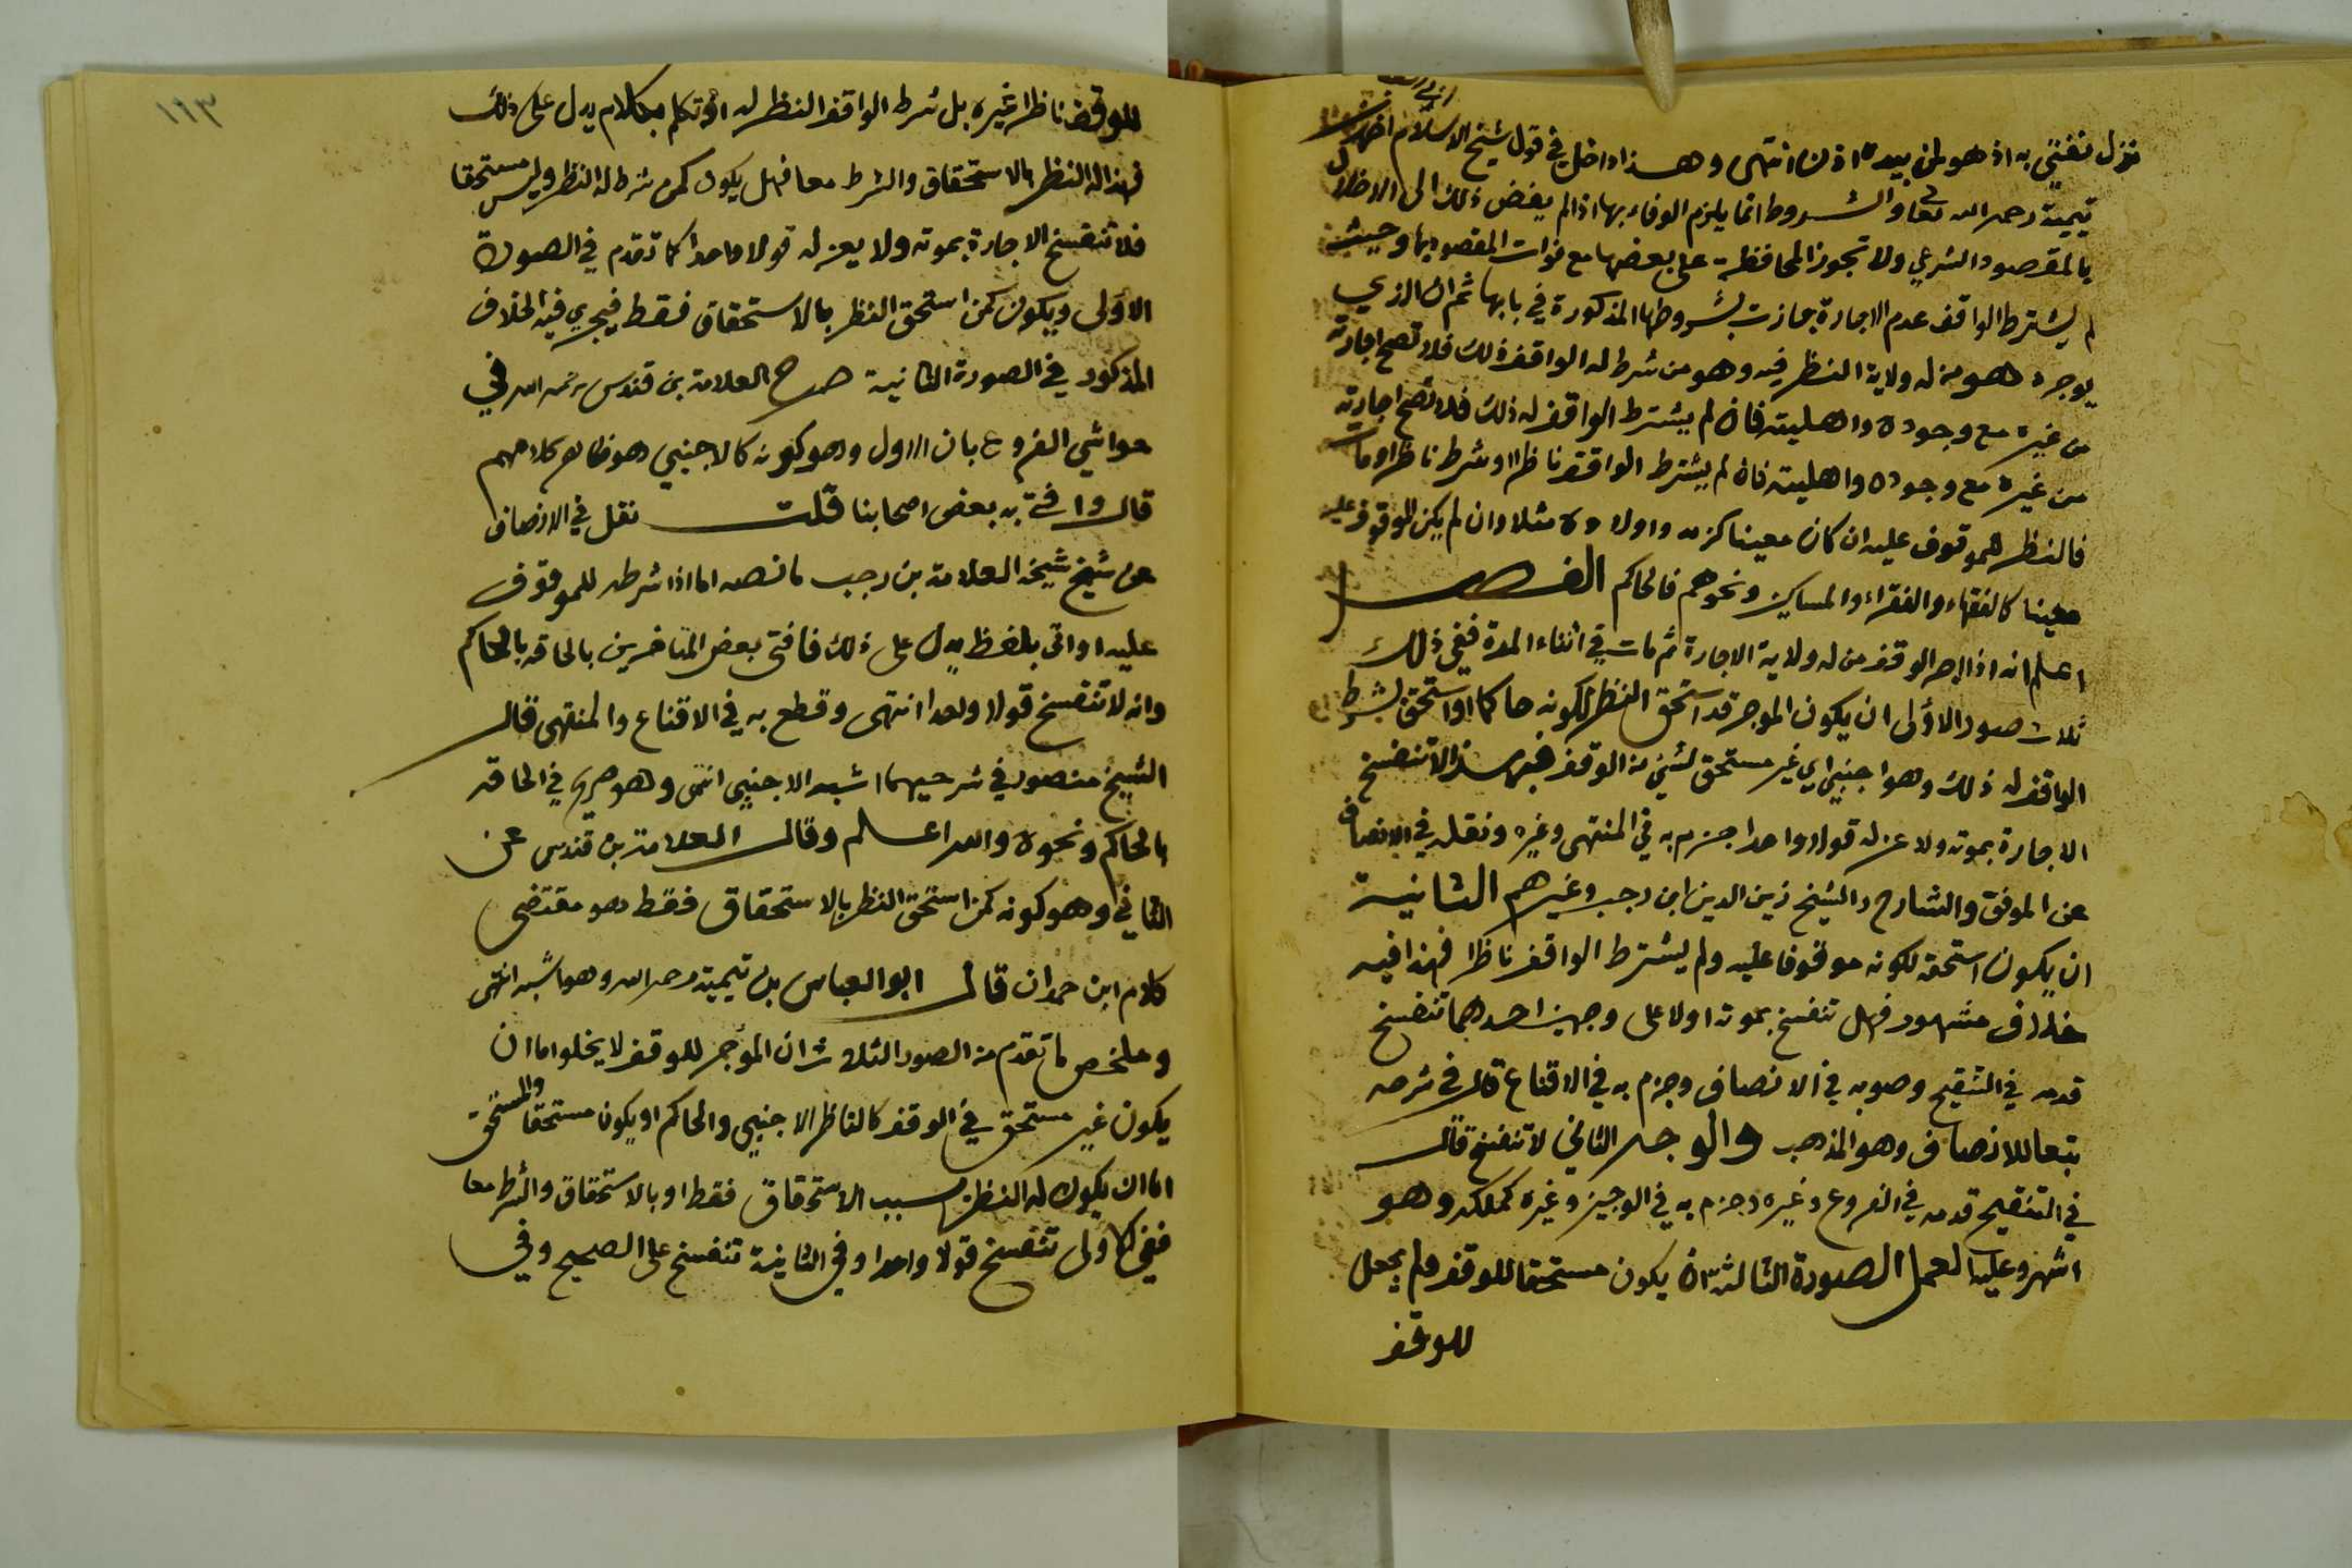 نزل نفتي به اذ هو لمن بيده اذن انتهى وهذا داخل في قول شيخ الاسلام
تيمية رحمه الله تعا والشروط انما يلزم الوفاء بها اذا لم يفض ذلك الى الاخلال
بالمقصود الشرعي ولا تجوز المحافظة على بعضها مع فوات المقصود بها وحيث
لم يشترط الواقف عدم الاجارة جازت بشروطها المذكورة في بابها ثم ان الذي
يوجره هو من له ولاية النظر فيه وهو من شرط له الواقف ذلك فلا تصح اجارته
من غيره مع وجوده واهليته فان لم يشترط الواقف له ذلك فلا تصح اجارته
من غيره مع وجوده واهليته فان لم يشترط الواقف ناظرا او شرط ناظرا ومات
فالنظر للموقوف عليه ان كان معينا كزيد واولاده مثلا وان لم يكن الموقوف عليه
معينا كالفقهاء والفقراء والمساكين ونحوهم فالحاكم الفصل
اعلم انه اذا اجر الوقف من له ولاية الاجارة ثم مات في اثناء المدة ففي ذلك
ثلاث صور الاولى ان يكون الموجر قد استحق النظر لكونه حاكما او استحق بشرط
الواقف له ذلك وهو اجنبي اي غير مستحق لشيء من الوقف فهذا لا تنفسخ
الاجارة بموته ولا عزله قولا واحدا جزم به في المنتهى وغيره ونقله في الانصاف
عن الموفق والشارح والشيخ زين الدين ابن رجب وغيرهم الثانية
ان يكون استحقه لكونه موقوفا عليه ولم يشترط الواقف ناظرا فهذا فيه
خلاف مشهور فهل تنفسخ بموته اولا على وجهين احدهما تنفسخ
قدمه في التنقيح وصوبه في الانصاف وجزم به في الاقناع قال في شرحه
تبعا للانصاف وهو المذهب والوجه الثاني لا تنفسخ قال
في التنقيح قدمه في الفروع وغيره وجزم به في الوجيز وغيره كملكه وهو
اشهر وعليه العمل الصورة الثالثة ان يكون مستحقا للوقف ولم يجعل
للوقف
١١٣
للوقف ناظرا غيره بل شرط الواقف النظر له او تكلم بكلام يدل على ذلك
فهذا له النظر بالاستحقاق والشرط معا فهل يكون كمن شرط له النظر وليس مستحقا
فلا تنفسخ الاجارة بموته ولا يعزله قولا واحدا كما تقدم في الصورة
الاولى ويكون كمن استحق النظر بالاستحقاق فقط فيجري فيه الخلاف
المذكور في الصورة الثانية صرح العلامة بن قندس رحمه الله في
حواشي الفروع بان الاول وهو كونه كالاجنبي هو ظاهر كلامهم
قال وافتى به بعض اصحابنا قلت نقل في الانصاف
عن شيخ شيخه العلامة بن رجب ما نصه اما اذا شرطه للموقوف
عليه او اتى بلفظ يدل على ذلك فافتى بعض المتاخرين بالحاقه بالحاكم
وانه لا تنفسخ قولا واحدا انتهى وقطع به في الاقناع والمنتهى قال
الشيخ منصور في شرحيهما اشبه الاجنبي انتهى وهو صريح في الحاقه
بالحاكم ونحوه والله اعلم وقال العلامة بن قندس عن
الثاني وهو كونه كمن استحق النظر بالاستحقاق فقط هو مقتضى
كلام ابن حمدان قال ابو العباس بن تيمية رحمه الله وهو اشبه انتهى
وملخص ما تقدم من الصور الثلاث ان المؤجر للوقف لا يخلو اما ان
يكون غير مستحق في الوقف كالناظر الاجنبي والحاكم او يكون مستحقا والمستحق
اما ان يكون له النظر بسبب الاستحقاق فقط او بالاستحقاق والشرط معا
ففي الاولى تنفسخ قولا واحدا وفي الثانية تنفسخ على الصحيح وفي